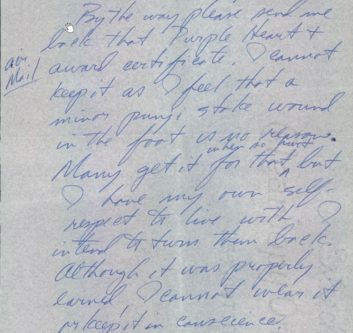 By the way please send me
back that Purple Heart &
air Mail
award certificate. I cannot
keep it as I feel that a
minor pungi stake wound
in the foot is no reason.
Many get it for that when so hurt but
I have my own self-
respect to live with I
intend to turn them back.
Although it was properly
earned, I cannot wear it
or keep it in conscience.